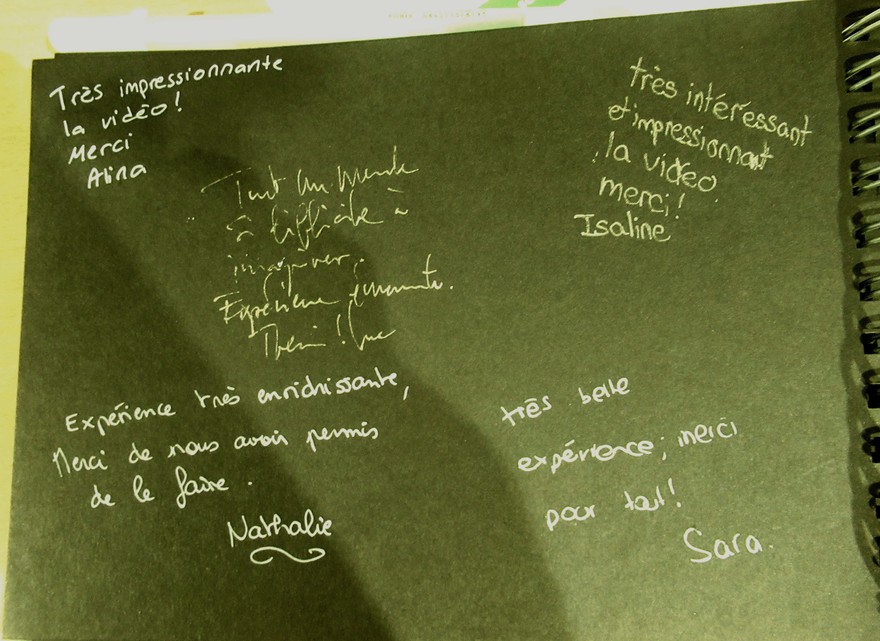 Très impressionnante
la vidéo!
Merci
Alina
Tout un monde
difficile à
imaginer.
Expérience émouvante.
Merci!
très intéressant
et impressionnant
la vidéo
merci!
Isaline
Expérience très enrichissante,
Merci de nous avoir permis
de le faire.
Nathalie
très belle
expérience; merci
pour tout!
Sara.